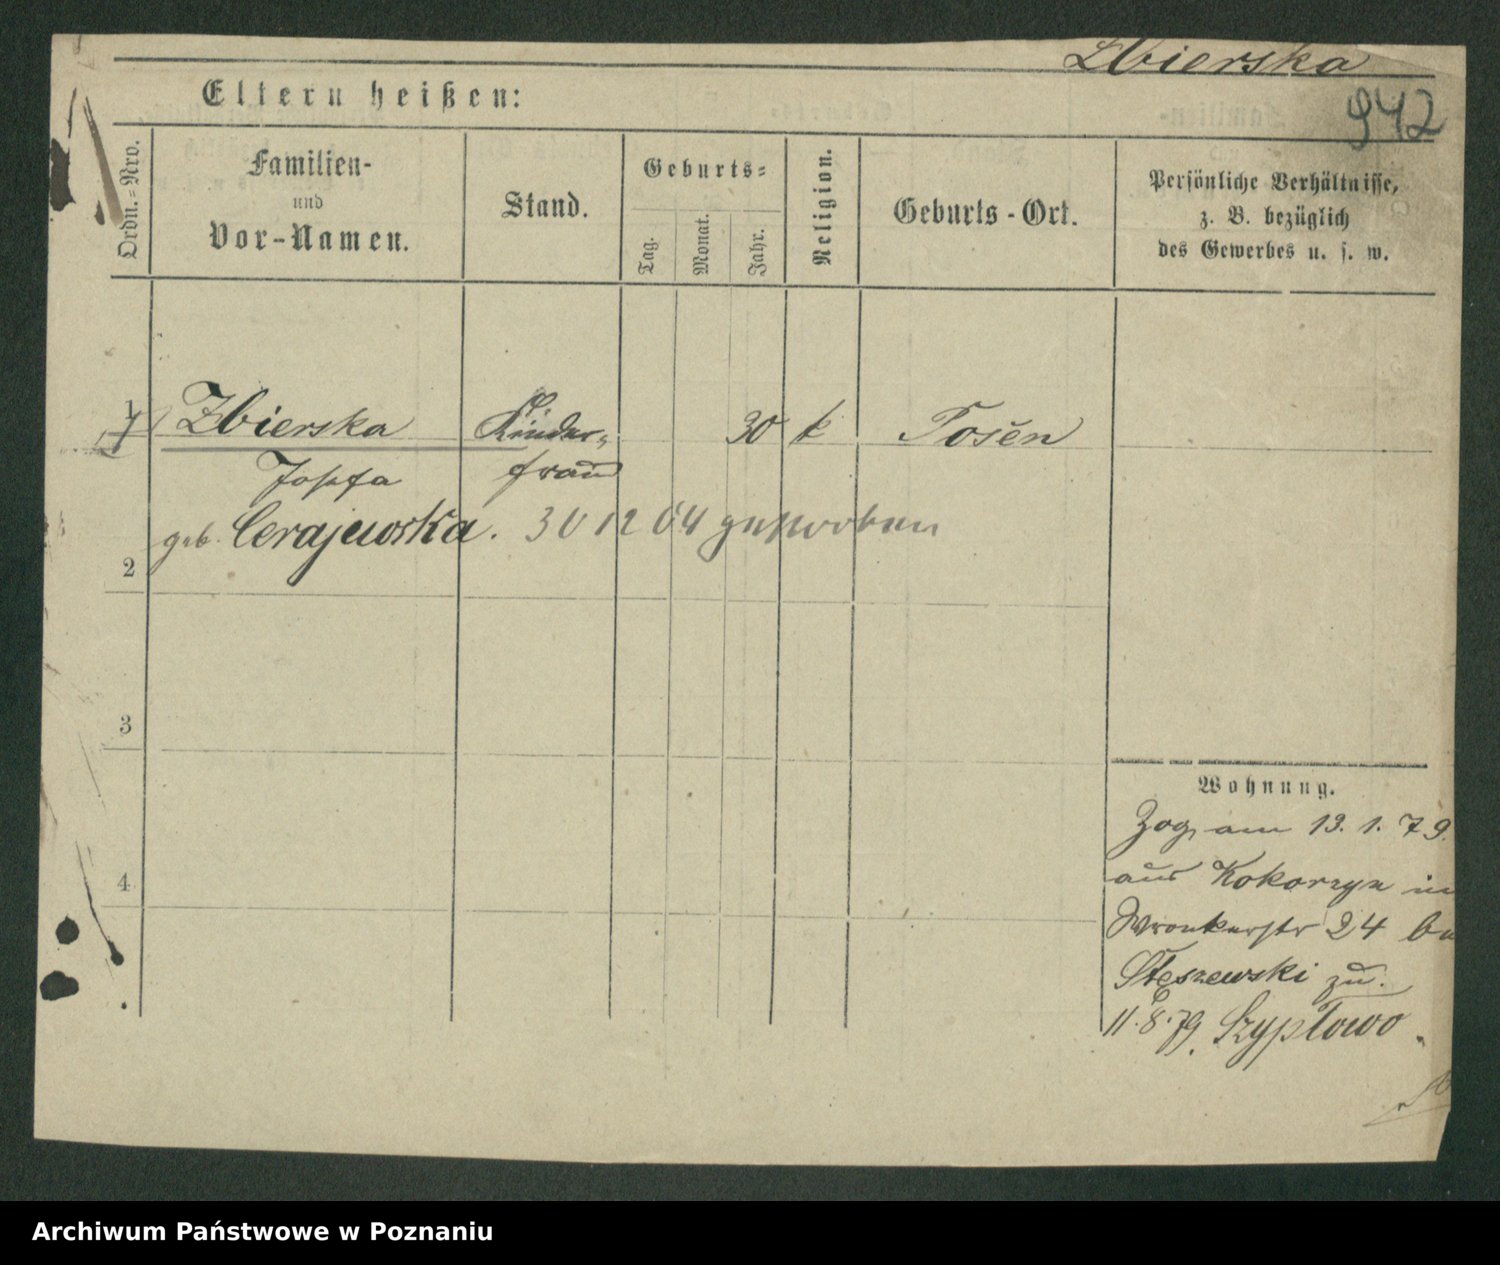 Zbierska
942
Eltern heißen:
Ordn.=Nro.
Familien-
und
Vor-Namen.
Stand.
Geburts=
Tag.
Monat.
Jahr.
Religion.
Geburts-Ort.
Persönliche Verhältnisse,
z. B. bezüglich
des Gewerbes u. s. w.
1
Zbierska Kinder= 30 k Posen
Josefa frau
geb. Cerajewska. 30 12 64 gestorben
2
3
4
Wohnung.
Zog am 13. 1. 79.
aus Kokorzyn in
Wronkerstr 24 bei
Stęszewski zu.
11.8.79. Szypłowo
Archiwum Państwowe w Poznaniu